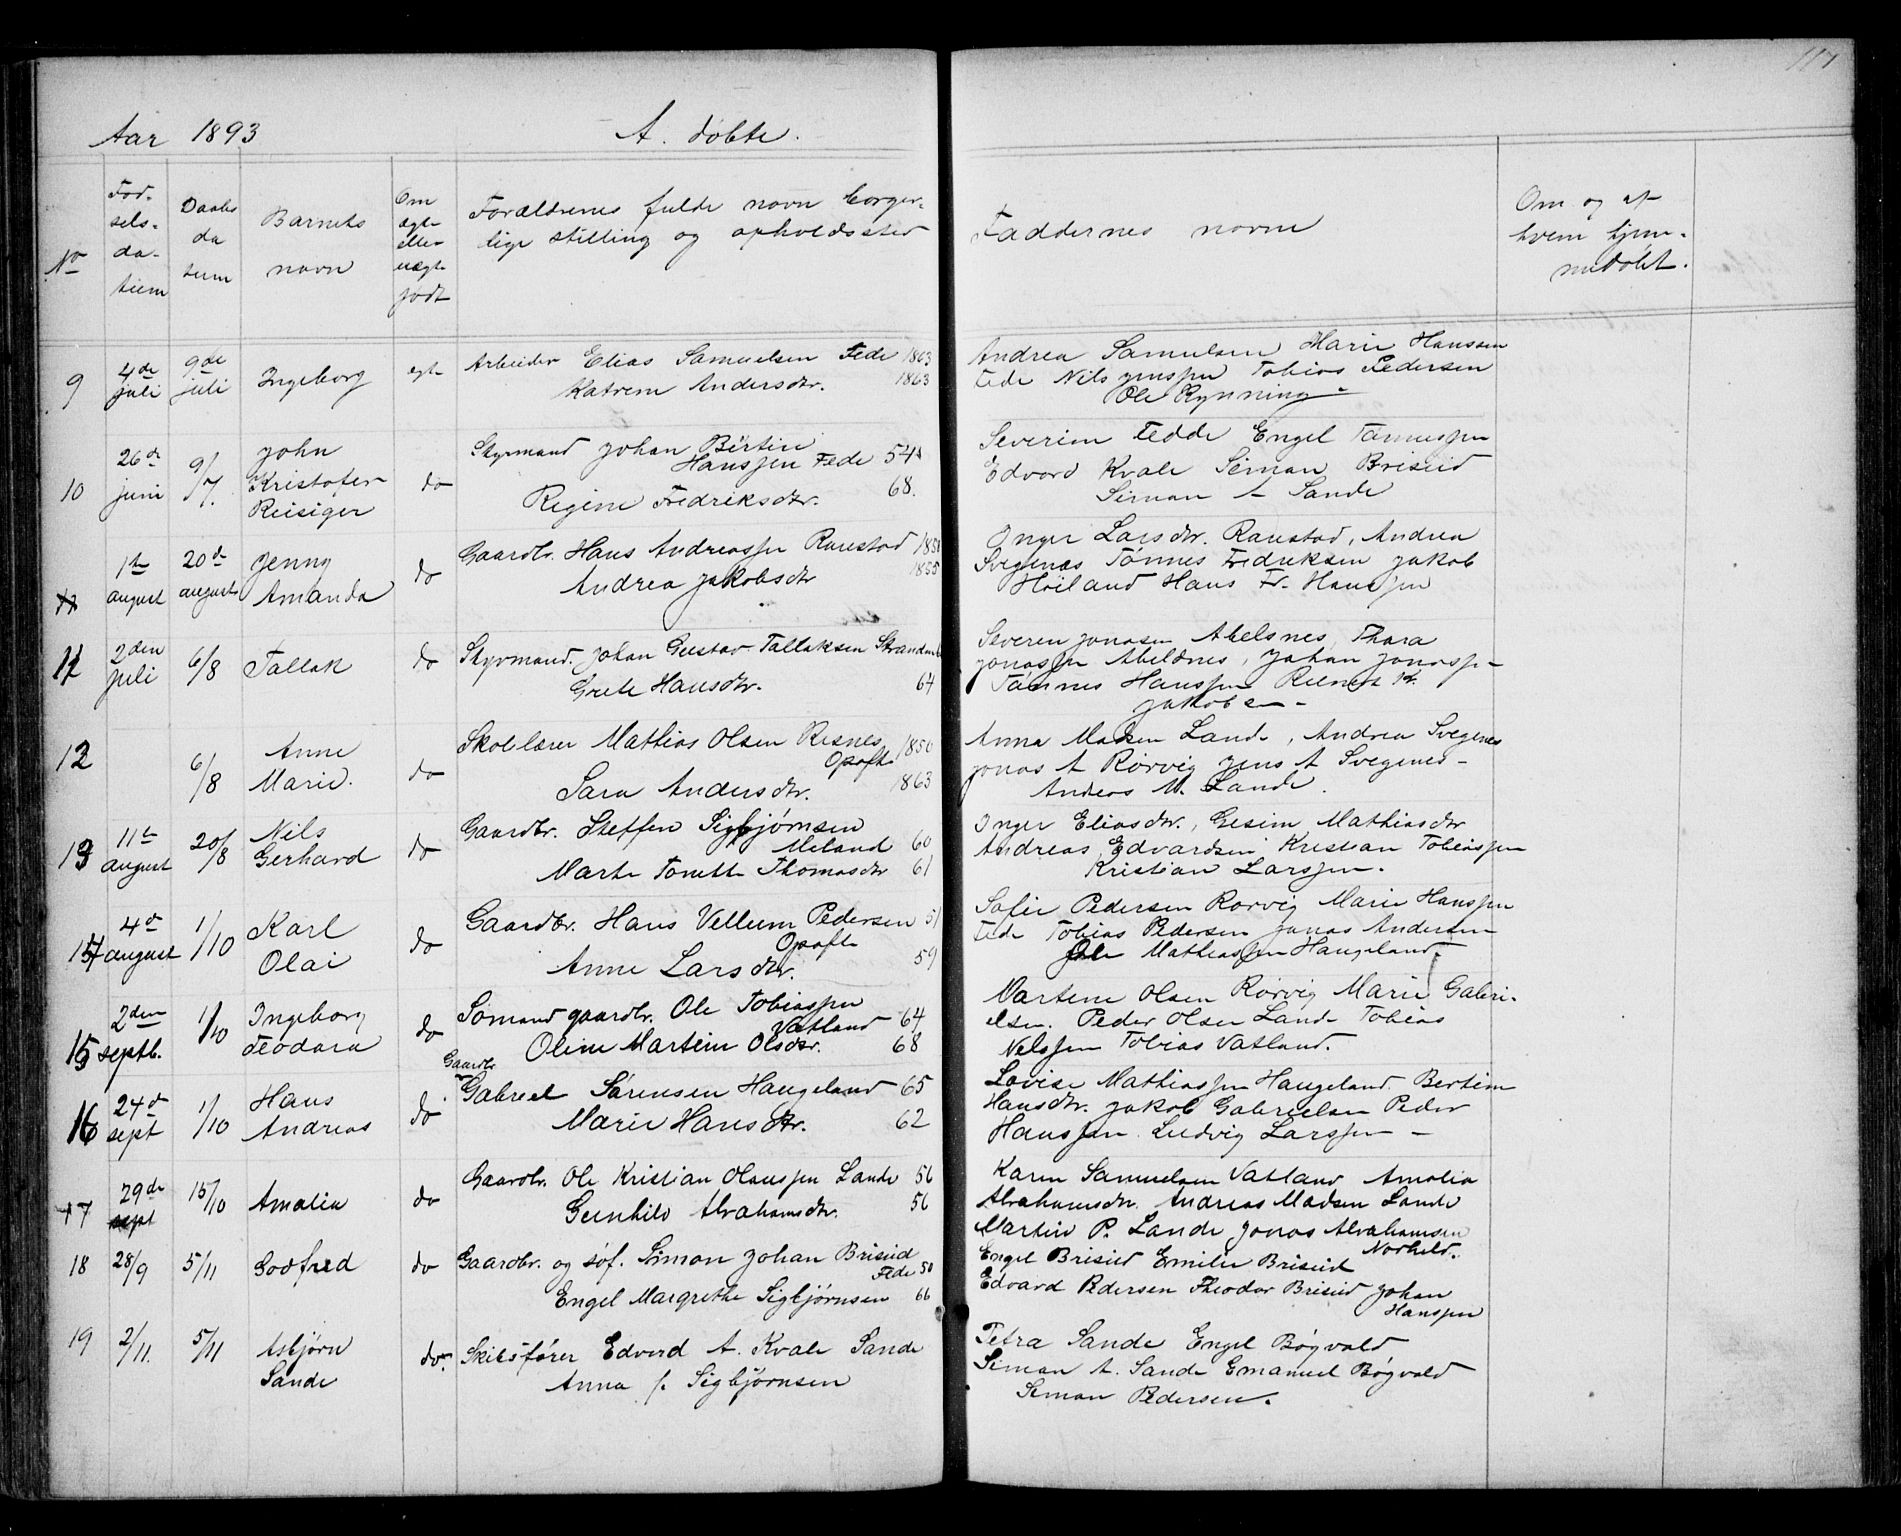 117
Aar 1893
A. døbte.
No
Fød-
sels-
da-
tum
Daabs
da
tum
Barnets
navn
Om
ægte
eller
uægte
født
Forældrenes fulde navn borger-
lige stilling og opholdssted
Faddernes navne
Om og af
hvem hjem-
medøbt.
9
4de
juli
9de
juli
Ingeborg
egte
Arbeider Elias Samuelsen Fede 1863
Katrine Andersdtr. 1863
Andrea Samuelsen Marie Hanssen
Fede Nils Jenssen Tobias Pedersen
Ole Rynning
10
26de
juni
9/7
John
Kristofer
Reisiger
do
Styrmand Johan Bertin
Hanssen Fede 54
Regine Fredriksdtr. 68.
Severine Fedde Engel Tønnessen
Edvard Kvale Siman Briseid
Siman A Sande
1te
august
20de
august
Jenny
Amanda
do
Gaardbr. Hans Andreassen Ranestad
Andrea Jakobsdtr 1855
Inger Larsdtr. Ranestad, Andrea
Svegenæs Tønnes Fredriksen Jakob
Høiland Hans Fr. Hanssen
11
2den
juli
6/8
Tallak
do
Styrmand. Johan Gustav Tallaksen
Grete Hansdtr. 64
Severen Jonasen Abelsnes, Thara
Jonassen Abelsnes, Johan Jonassen
Tønnes Hanssen
Jakobsen
12
6/8
Anne
Marie.
do
Skolelærer Mathias Olsen Risnes 1850
Opofte
Sara Andersdtr. 1863
Anna Madsen Lande, Andrea Svegenes
Jonas A Rørvig Jens A Svegenes
Andreas M. Lande.
13
11te
august
20/8
Nils
Gerhard
do
Gaardbr. Steffen Sigbjørnsen
Meland 60
Marte Tonette Thomasdtr 61
Inger Eliasdtr., Gesine Mathiasdtr
Andreas Edvardsen Kristian Tobiassen
Kristian Larssen.
4de
august
1/10
Karl
Olai
do
Gaardbr. Hans Vellum Pedersen 51
Opofte
Anne Larsdtr. 59
Sofie Pedersen Rørvig Marie Hanssen
Fede Tobias Pedersen Jonas Andersen
Ole Mathiassen Haugeland
15
2den
septb.
1/10
Ingeborg
Teodora
do
Sømand gaardbr. Ole Tobiassen
Vatland 64
Oline Martine Olsdtr. 68
Martine Olsen Rørvig Marie Gabri-
elsen. Peder Olsen Lande Tobias
Nelssen Tobias Vatland.
16
24de
sept
1/10
Hans
Andreas
do
Gaardbr
Gabriel Sørensen Haugeland 65
Marie Hansdtr. 62
Lovise Mathiassen Haugeland. Bertine
Hansdtr. Jakob Gabrielsen Peder
Hanssen. Ludvig Larssen
17
29de
sept
15/10
Amalia
do
Gaardbr. Ole Kristian Olaussen Lande 56
Gunhild Abrahamsdtr. 56
Karen Samuelsen Vatland Amalia
Abrahamsdtr. Andreas Madsen Lande
Martin P. Lande Jonas Abrahamsen
18
28/9
5/11
Godfred
do
Gaardbr. og søf. Simon Johan Brisied
Fede 50
Engel Margrethe Sigbjørnsen 66
Engel Brisied Emilie Brisied
Edvard Pedersen Theodor Brisied Johan
Hanssen
19
2/11.
5/11
Asbjørn
Sande
do
Skibsfører Edvard A. Kvale Sande
Anna f. Sigbjørnsen
Petra Sande Engel Bøgvald
Siman A. Sande Emanuel Bøgvald
Siman Pedersen.